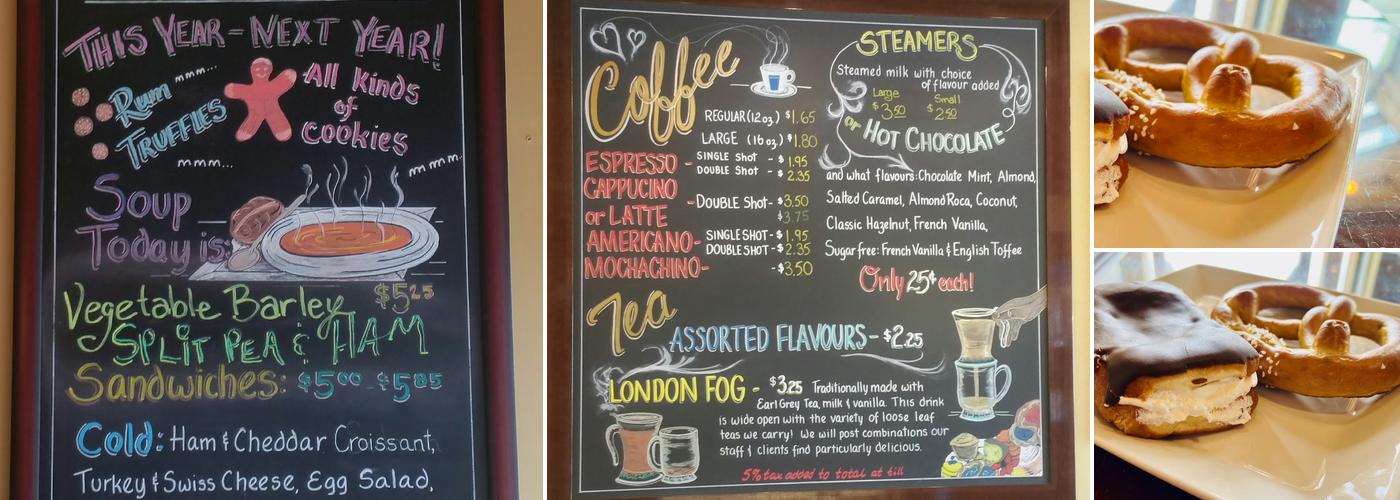 THIS YEAR - NEXT YEAR!
mmm...
Rum
TRUFFLES
All Kinds
of
Cookies
mmm...
mmm
Soup
Today is:
Vegetable Barley $5.25
SPLIT PEA & HAM
Sandwiches: $5.00 - $5.85
Cold: Ham & Cheddar Croissant,
Turkey & Swiss Cheese, Egg Salad,
Coffee
REGULAR (12oz.) $1.65
LARGE (16oz.) $1.80
ESPRESSO - SINGLE Shot - $1.95
DOUBLE Shot - $2.35
CAPPUCINO
or LATTE - DOUBLE Shot - $3.50
$3.75
AMERICANO - SINGLE SHOT - $1.95
DOUBLE SHOT - $2.35
MOCHACHINO - - $3.50
Tea
ASSORTED FLAVOURS - $2.25
LONDON FOG - $3.25 Traditionally made with
Earl Grey Tea, milk & vanilla. This drink
is wide open with the variety of loose leaf
teas we carry! We will post combinations our
staff & clients find particularly delicious.
5% tax added to total at till
STEAMERS
Steamed milk with choice
of flavour added
Large Small
$3.50 $2.50
or HOT CHOCOLATE
and what flavours: Chocolate Mint, Almond,
Salted Caramel, Almond Roca, Coconut,
Classic Hagelnut, French Vanilla,
Sugar free: French Vanilla & English Toffee
Only 25¢ each!